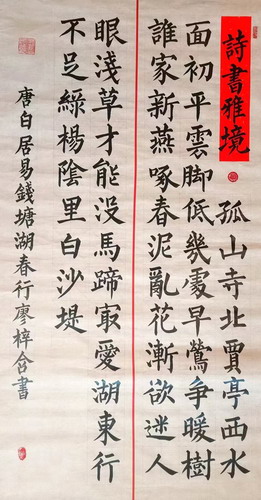 詩書雅境
孤山寺北賈亭西水
面初平雲脚低幾處早鶯争暖樹
誰家新燕啄春泥亂花漸欲迷人
眼淺草才能没馬蹄㝡愛湖東行
不足綠楊陰里白沙堤
唐白居易錢塘湖春行廖梓含書